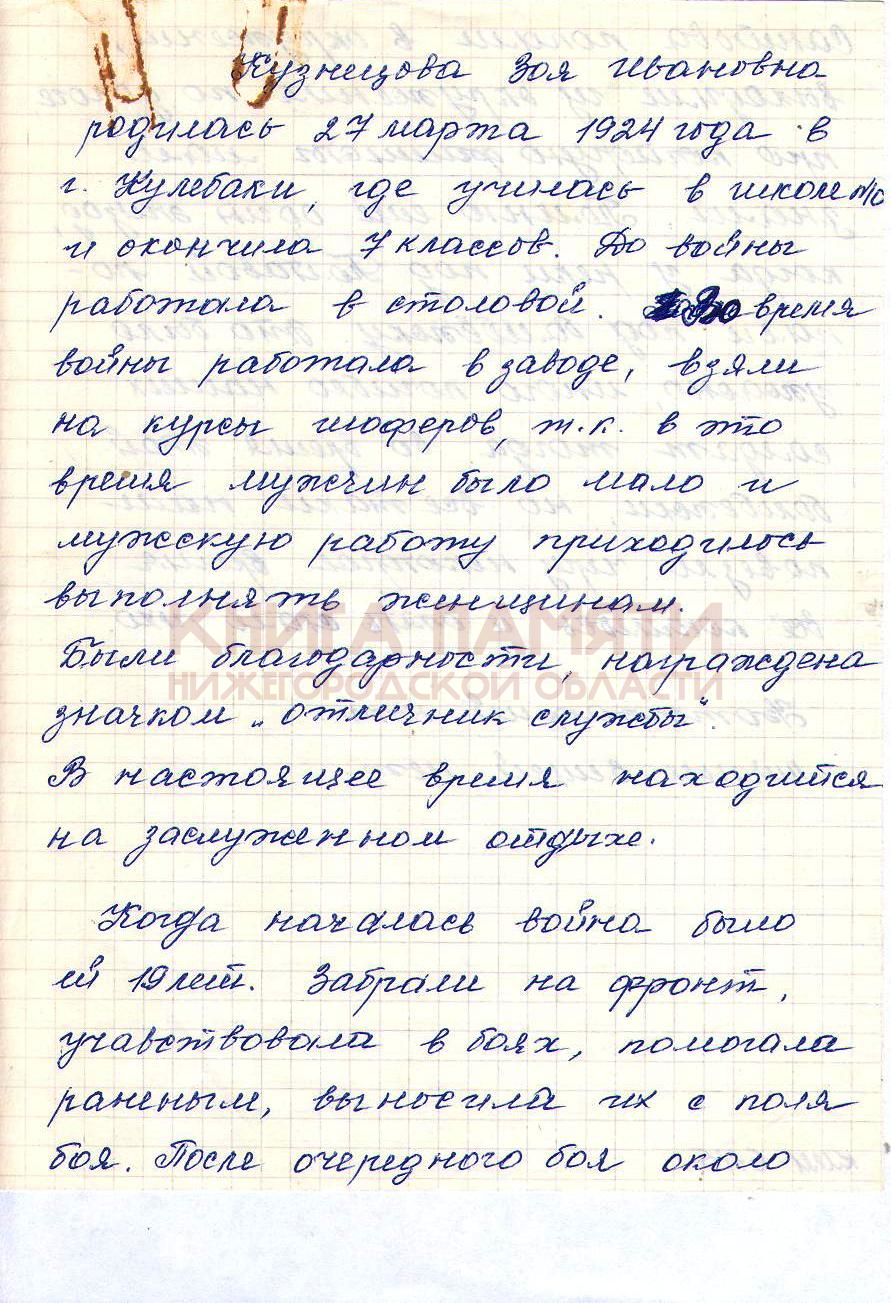 Кузнецова Зоя Ивановна
родилась 27 марта 1924 года в
г. Кулебаки, где училась в школе №10
и окончила 7 классов. До войны
работала в столовой. Во время
войны работала в заводе, взяли
на курсы шоферов, т.к. в это
время мужчин было мало и
мужскую работу приходилось
выполнять женщинам.
КНИГА ПАМЯТИ
Были благодарности, награждена
НИЖЕГОРОДСКОЙ ОБЛАСТИ
значком „отличник службы".
В настоящее время находится
на заслуженном отдыхе.
Когда началась война было
ей 19 лет. Забрали на фронт,
учавствовала в боях, помогала
раненым, выносила их с поля
боя. После очередного боя около